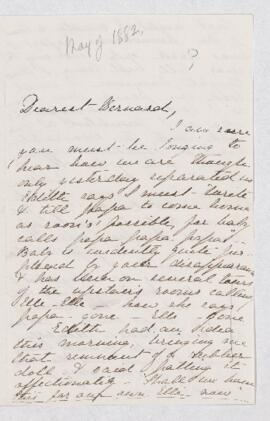 May of 1882.
?
Dearest Bernard,
I am sure
you must be longing to
hear how we are though
only yesterday separated in
Edith says I must "write
& tell Papa to come home
as soon's possible, for baby
calls papa papa papa"
Baby is evidently quite
by your disappearance
& has been on several tours
of the upstairs rooms calling
Elle - Elle - how she says
papa - gone - Ello - Gone
Edith had an idea
this morning, bringing me
that remnant of a
doll & said patting it
affectionately "Shall we have
this for our own Ello now